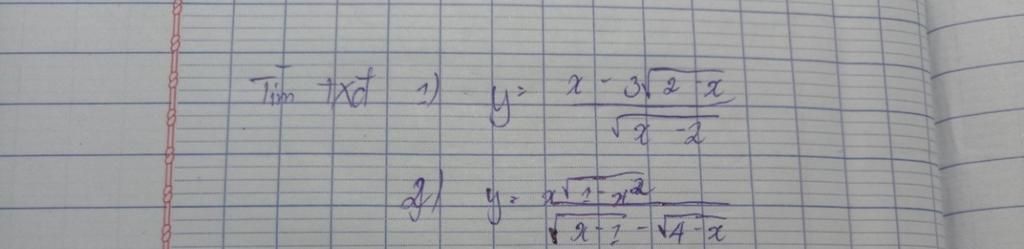 Tìm TXĐ 1) y = \frac{x - 3\sqrt{2 - x}}{\sqrt{x - 2}}
2) y = \frac{x\sqrt{1 - x^2}}{\sqrt{x - 1} - \sqrt{4 - x}}